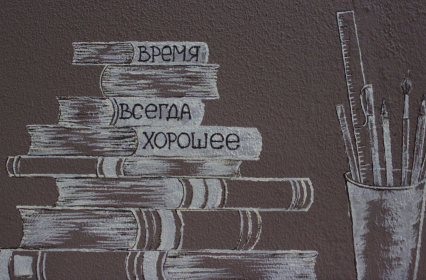 ВРЕМЯ
ВСЕГДА
ХОРОШЕЕ